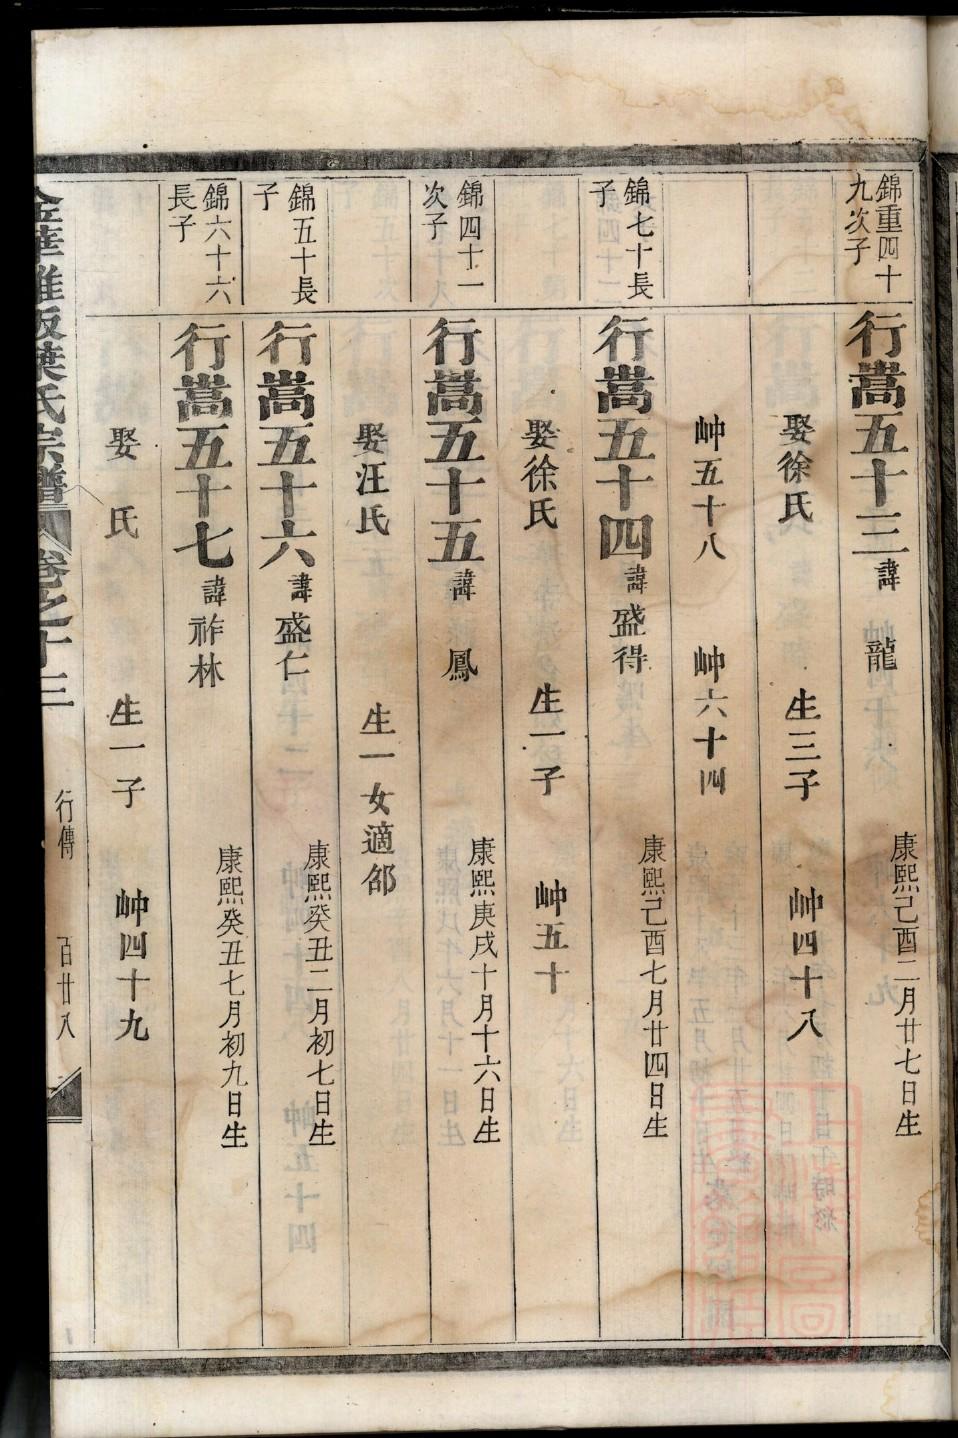 錦重四十
九次子
行嵩五十三諱 龍 康熙己酉二月廿七日生
娶徐氏 生三子 岫四十八
岫五十八 岫六十四
錦七十長
子
行嵩五十四諱盛得 康熙己酉七月廿四日生
娶徐氏 生一子 岫五十
錦四十一
次子
行嵩五十五諱 鳳 康熙庚戌十月十六日生
娶汪氏 生一女適郤
錦五十長
子
行嵩五十六諱盛仁 康熙癸丑二月初七日生
錦六十六
長子
行嵩五十七諱祚林 康熙癸丑七月初九日生
娶 氏 生一子 岫四十九
金華雅畈葉氏宗譜 卷之十三 行傳 百廿八